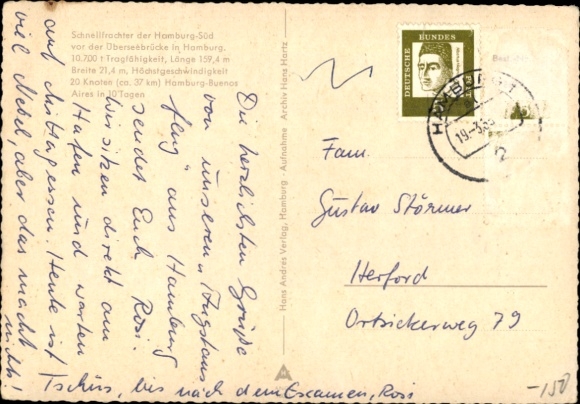 Schnellfrachter der Hamburg-Süd
vor der Überseebrücke in Hamburg.
10.700 t Tragfähigkeit, Länge 159,4 m
Breite 21,4 m, Höchstgeschwindigkeit
20 Knoten (ca. 37 km) Hamburg-Buenos
Aires in 10 Tagen
Die herzlichsten Grüße
von unserem "
flug" aus Hamburg
sendet Euch Rosi.
Wir sitzen direkt am
Hafen und warten
auf Mittagessen. Heute ist
viel Nebel, aber das macht
nichts!
Tschüs, bis nach dem Examen, Rosi
Hans Andres Verlag, Hamburg · Aufnahme Archiv Hans Hartz
DEUTSCHE BUNDESPOST
HAMBURG 1
19.-3.65
Fam.
Gustav Störmer
Herford
Ortsiekerweg 79
-150